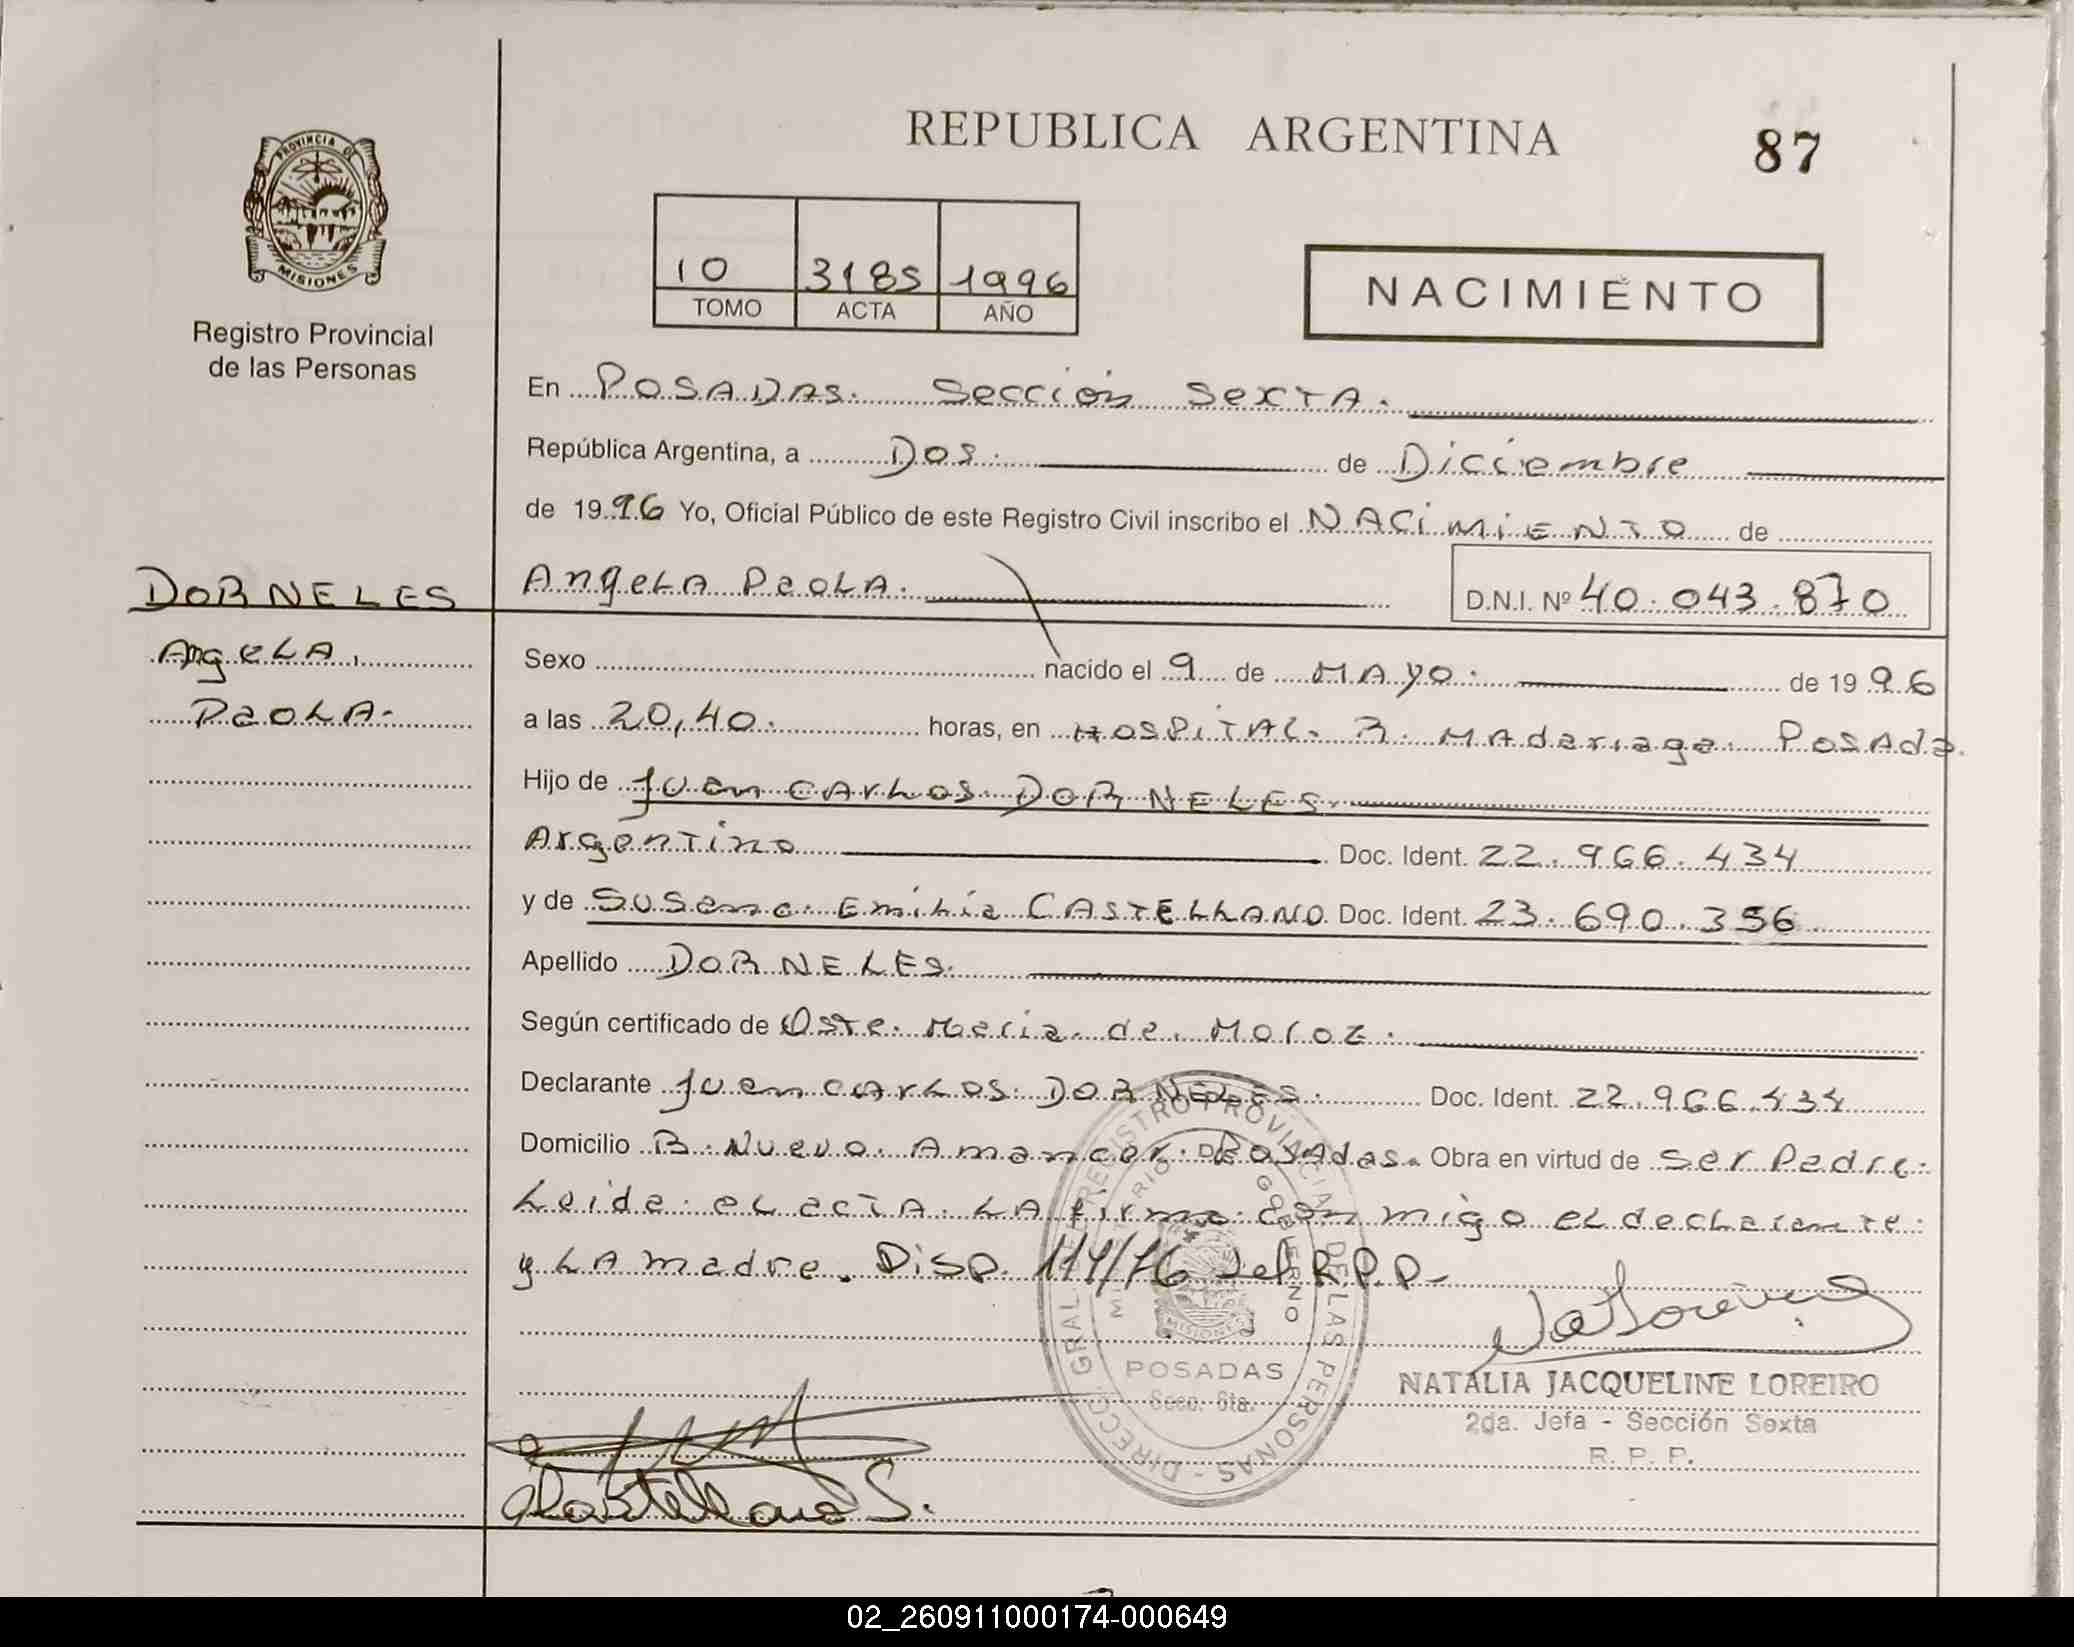 REPUBLICA ARGENTINA
87
PROVINCIA DE
MISIONES
Registro Provincial
de las Personas
10 3185 1996
TOMO ACTA AÑO
NACIMIENTO
En POSADAS. Sección Sexta.
República Argentina, a Dos. de Diciembre
de 1996 Yo, Oficial Público de este Registro Civil inscribo el NACIMIENTO de
DORNELES
Angela Paola. D.N.I. Nº 40.043.870
Angela
Paola-
Sexo nacido el 9 de MAYO. de 1996
a las 20,40. horas, en HOSPITAL. R. Madariaga. Posada.
Hijo de Juan Carlos DORNELES.
Argentino Doc. Ident. 22.966.434
y de Susana Emilia CASTELLANO. Doc. Ident. 23.690.356
Apellido DORNELES.
Según certificado de Oste. Maria de Moroz.
Declarante Juan Carlos DORNELES. Doc. Ident. 22.966.434
Domicilio B. Nuevo Amancer. Posadas. Obra en virtud de Ser Padre.
Leida el acta LA firma con migo el declarante.
y LA madre. Disp. 114/76 del R.P.P-
DIRECC. GRAL. DEL REGISTRO PROVINCIAL DE LAS PERSONAS -
MINISTERIO DE GOBIERNO
MISIONES
POSADAS
Secc. 6ta.
NATALIA JACQUELINE LOREIRO
2da. Jefa - Sección Sexta
R. P. P.
Castellano S.
02_260911000174-000649